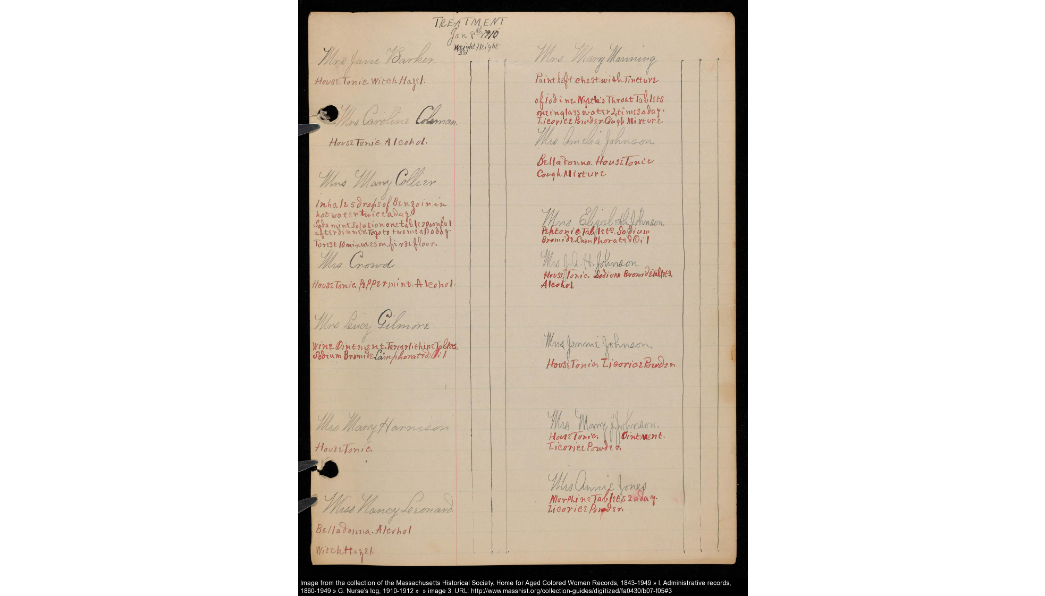 TREATMENT
Jan 8th 1910
Weight Height
Mrs Jane Barker
House Tonic Witch Hazel.
Mrs Caroline Coleman
House Tonic Alcohol.
Mrs Mary Collier
Inhale 5 drops of Benzoin in
hot water twice a day
solution one tablespoonful
after dinner
rest 10 minutes on first floor.
Mrs Crowd
House Tonic Peppermint Alcohol
Mrs Lucy Gilmore
Zinc Ointment
Sodium Bromide Camphorated Oil
Mrs Mary Harrison
House Tonic
Miss Nancy Leonard
Belladonna. Alcohol
Witch Hazel
Mrs Mary Manning
Paint left chest with Tincture
of Iodine Throat Tablets
one in glass water 2 times a day.
Licorice Powder Cough Mixture
Mrs Amelia Johnson
Belladonna. House Tonic
Cough Mixture
Mrs Elizabeth Johnson
Peptonic Tablets. Sodium
Bromide Camphorated Oil
Mrs J. H. Johnson
House Tonic Sodium Bromide
Alcohol
Mrs Jennie Johnson
House Tonic Licorice Powder
Mrs Mary Johnson
House Tonic. Ointment.
Licorice Powder.
Mrs Annie Jones
Morphine Tablets 2 a day.
Licorice Powder.
Image from the collection of the Massachusetts Historical Society. Home for Aged Colored Women Records, 1843-1949 » I. Administrative records,
1860-1949 » G. Nurse's log, 1910-1912 » » image 3. URL: http://www.masshist.org/collection-guides/digitized/fa0430/b07-f05#3